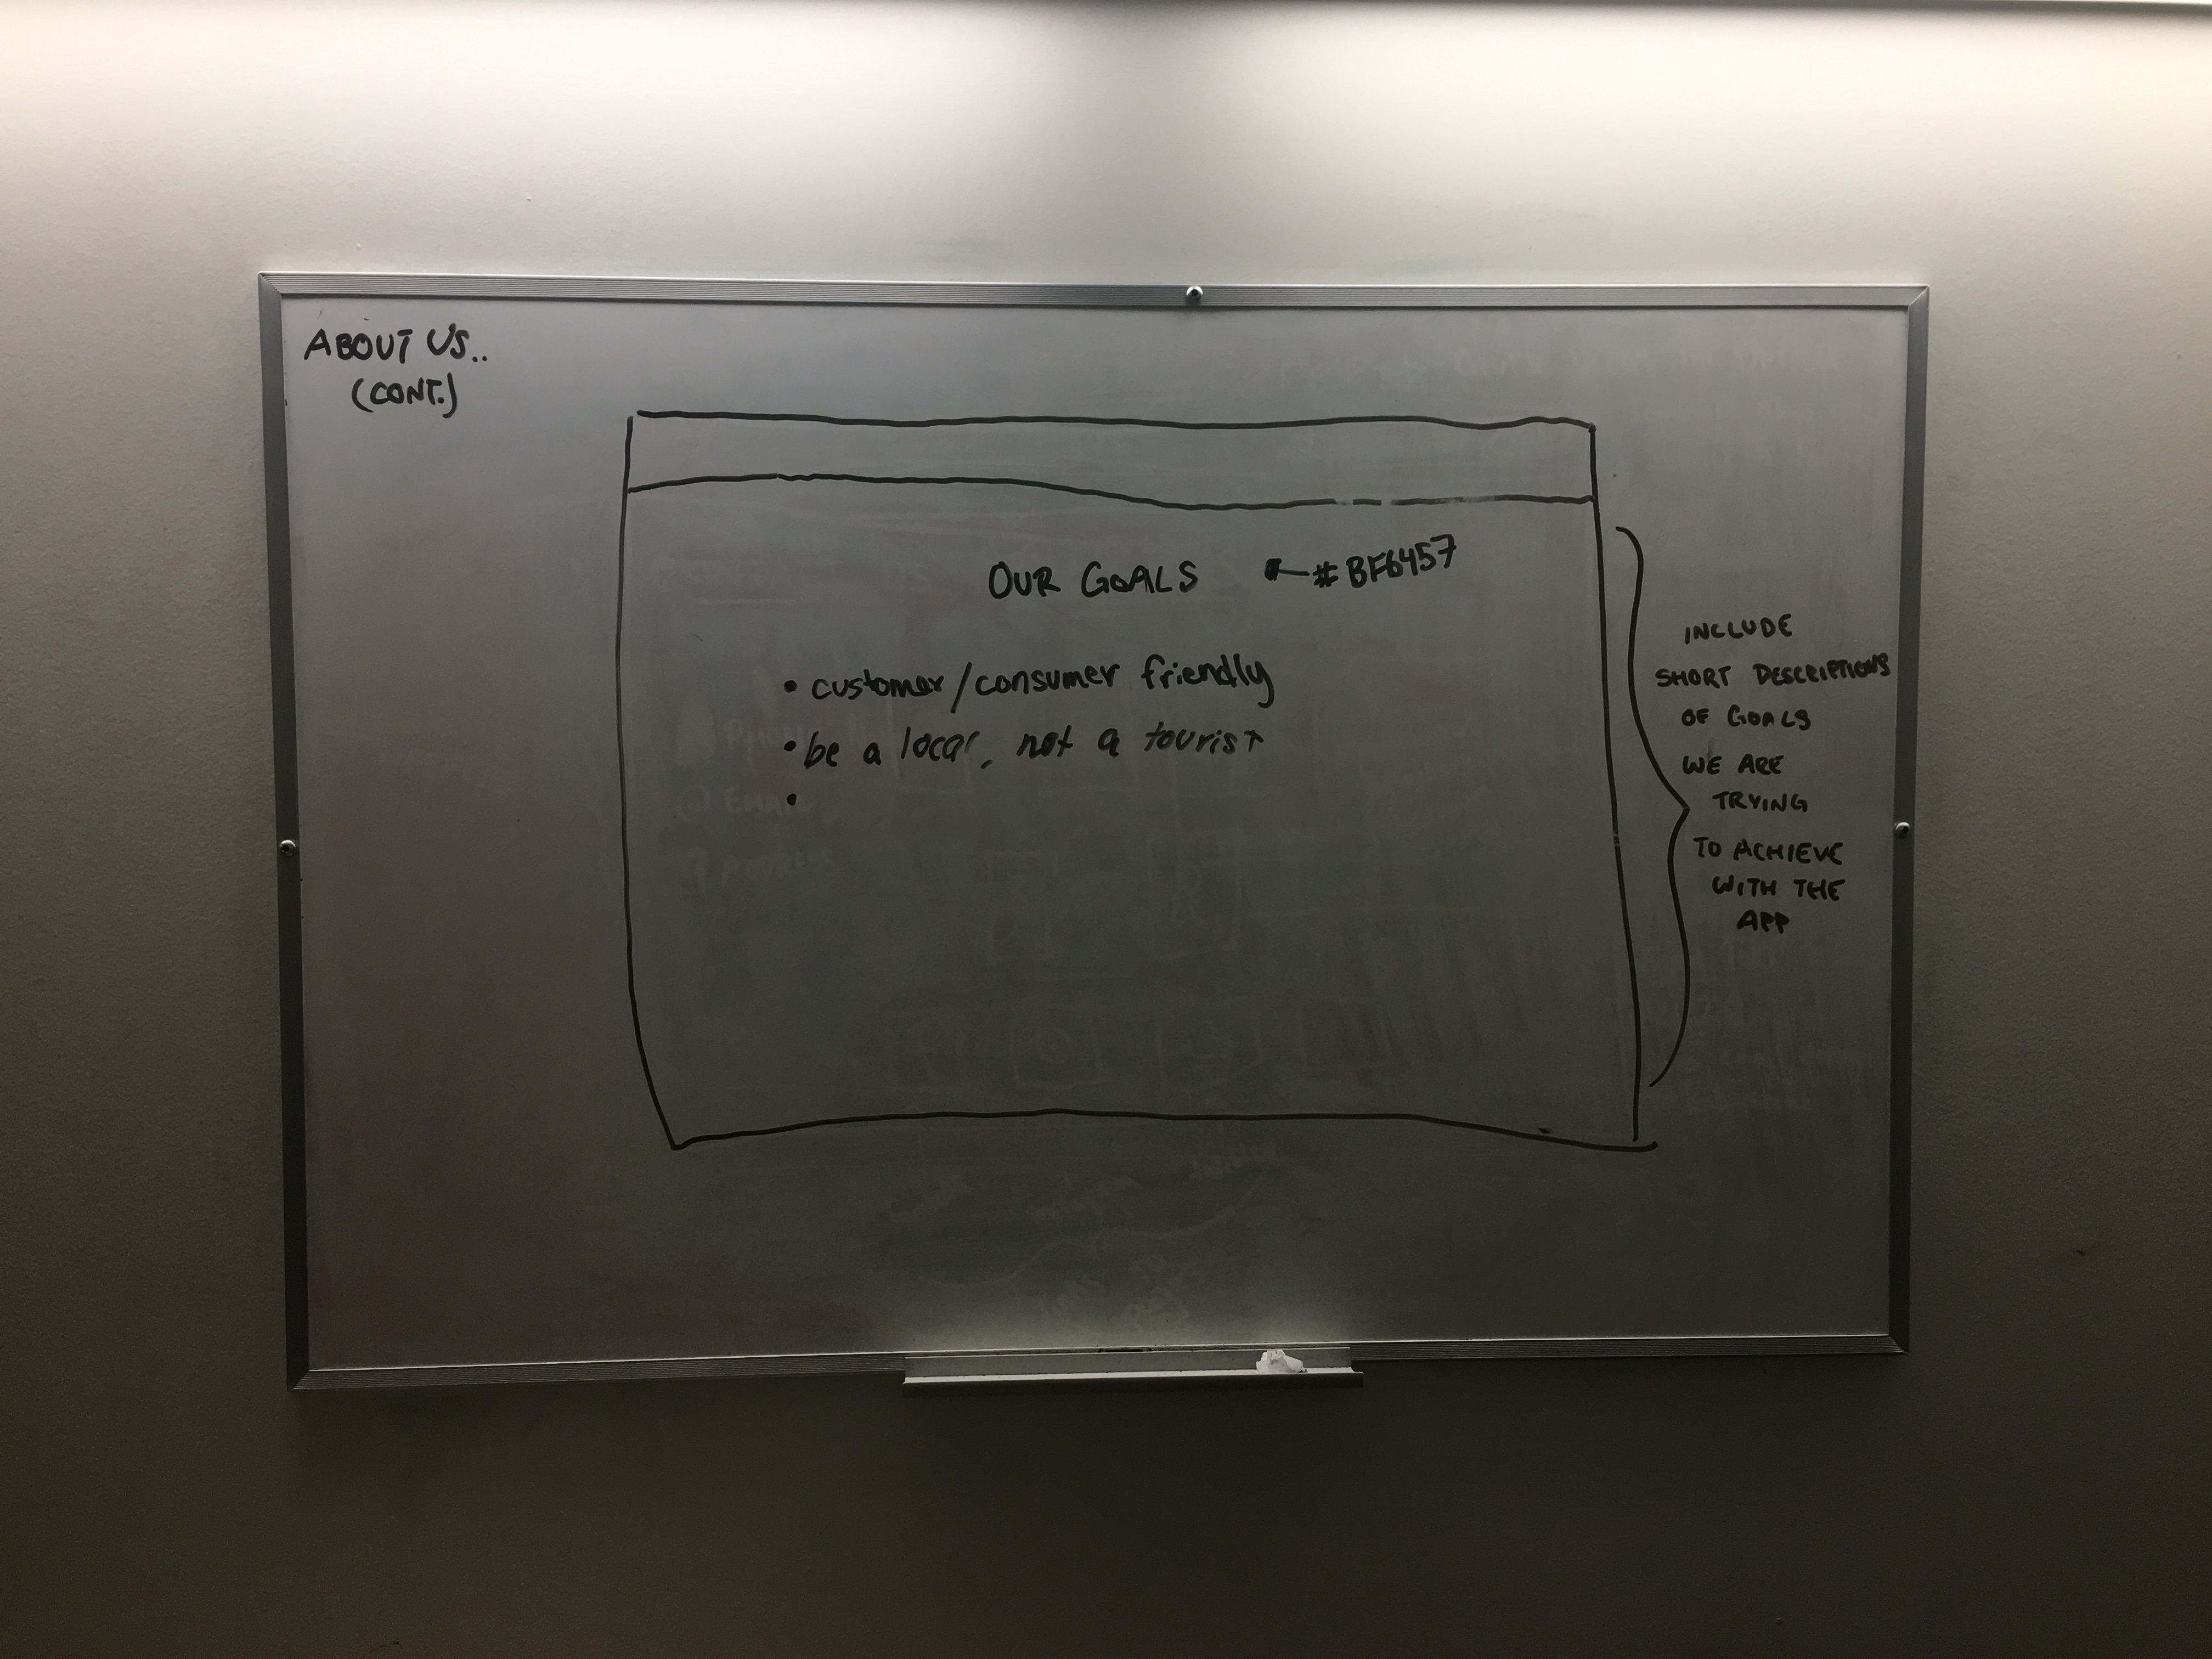 ABOUT US..
(CONT.)
OUR GOALS ← #BF6457
• customer/consumer friendly
• be a local, not a tourist
•
INCLUDE
SHORT DESCRIPTIONS
OF GOALS
WE ARE
TRYING
TO ACHIEVE
WITH THE
APP
EMAIL
ADDRESS